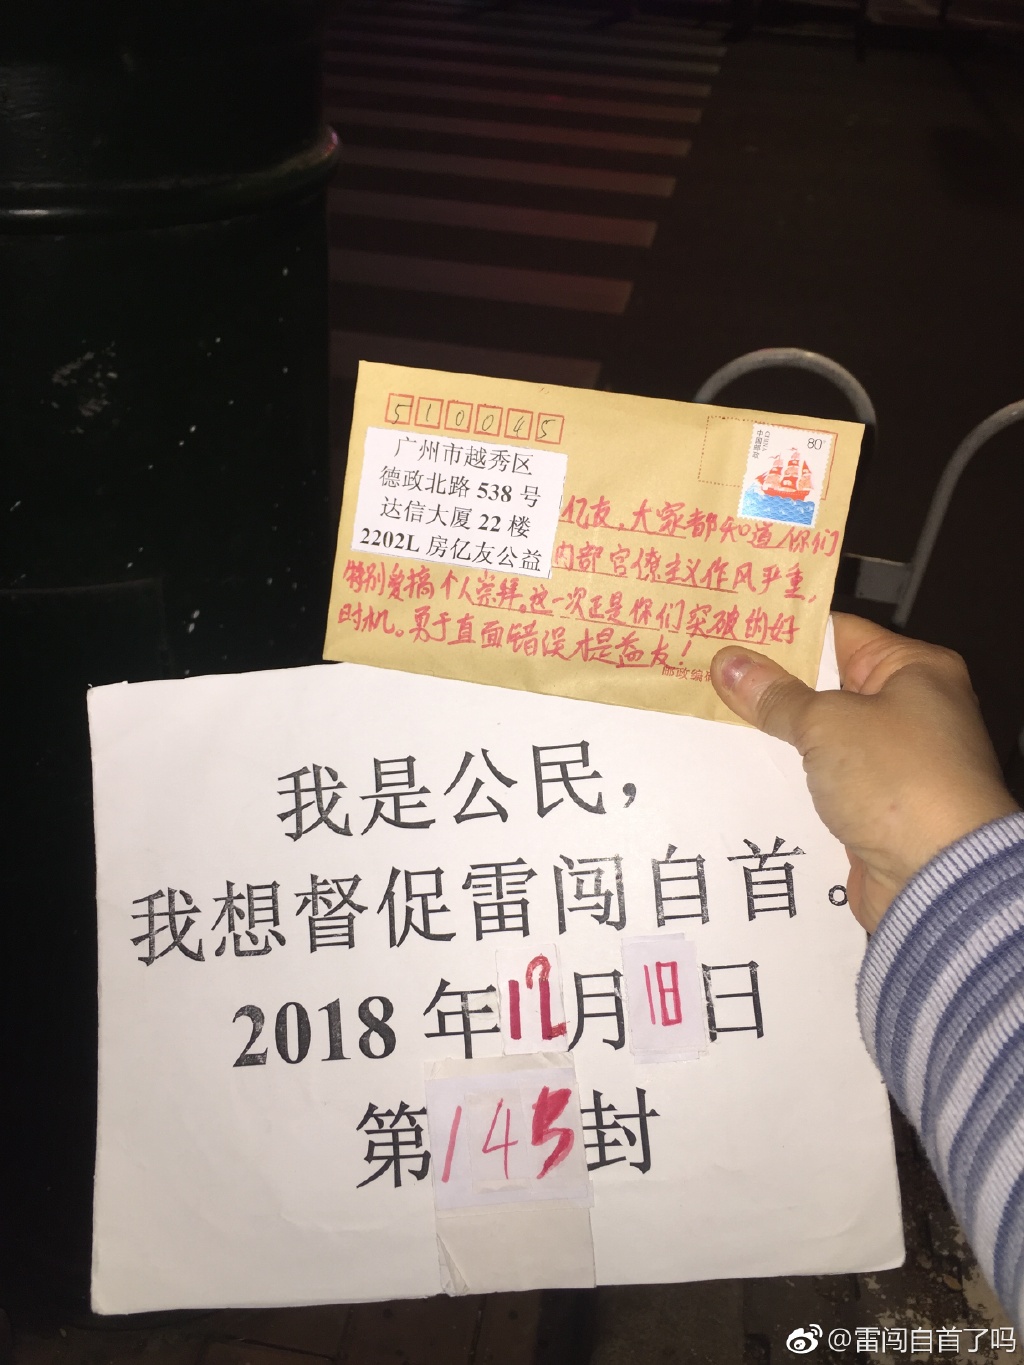 510045
中国邮政
CHINA
80
广州市越秀区
德政北路 538 号
达信大厦 22 楼
2202L 房亿友公益
亿友,大家都知道,你们
内部官僚主义作风严重,
特别爱搞个人崇拜。这一次正是你们突破的好
时机。勇于直面错误才是益友!
邮政编码
我是公民,
我想督促雷闯自首。
2018 年12月18日
第145封
@雷闯自首了吗